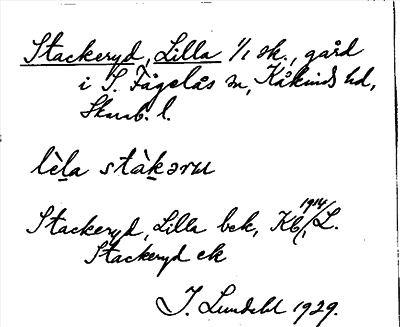 Stackeryd, Lilla 1/1 sk., gård
i S. Fågelås sn, Kåkinds hd,
Skarab. l.
lèla stàkəru
Stackeryd, Lilla bek, Kbl, 1914 L.
Stackeryd ek
J. Lundahl 1929.